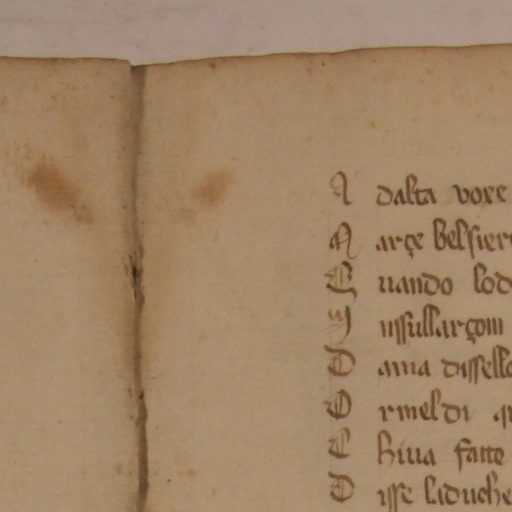 A dalta voxe
A arçe belsier
Q uando lod
I nssullarçom
D ama dissello
O rmeldi q
C hiua fatto
D isse liduche